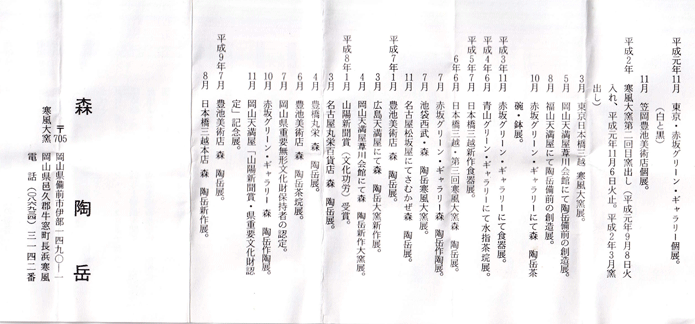 平成元年11月　東京・赤坂グリーン・ギャラリー個展。
（白と黒）
11月　笠岡豊池美術店個展。
平成2年　寒風大窯第二回目窯出し（平元年9月8日火
入れ、平元年11月6日火止。平成2年3月窯
出し）
3月　東京日本橋三越 寒風大窯展。
5月　岡山天満屋葦川会館にて陶岳備前の創造展。
8月　福山天満屋にて陶岳備前の創造展。
10月　赤坂グリーン・ギャラリーにて森　陶岳茶
碗・鉢展。
平成3年11月　赤坂グリーン・ギャラリーにて食器展。
平成4年6月　青山グリーン・ギャラリーにて水指茶碗展。
平成5年7月　日本橋三越新作食器展。
6年6月　日本橋三越・第三回寒風大窯森　陶岳展。
7月　赤坂グリーン・ギャラリー森　陶岳作陶展。
7月　池袋西武・森　陶岳寒風大窯展。
11月　名古屋松坂屋にてさむかぜ森　陶岳展。
平成7年1月　豊池美術店　森　陶岳展。
3月　広島天満屋にて森　陶岳大窯新作展。
4月　岡山天満屋葦川会館にて森　陶岳新作大窯展。
平成8年1月　山陽新聞賞（文化功労）受賞。
3月　名古屋丸栄百貨店　森　陶岳展。
4月　豊橋丸栄　森　陶岳展。
6月　豊池美術店　森　陶岳茶碗展。
7月　岡山県重要無形文化財保持者の認定。
10月　赤坂グリーン・ギャラリー　森　陶岳作陶展。
11月　岡山天満屋「山陽新聞賞・県重要文化財認
定」記念展。
平成9年7月　豊池美術店　森　陶岳展。
8月　日本橋三越本店　森　陶岳新作展。
森　陶　岳
〒705　岡山県備前市伊部一四九〇―一
寒風大窯　岡山県邑久郡牛窓町長浜寒風
電　話（〇八六九四）三一四二番